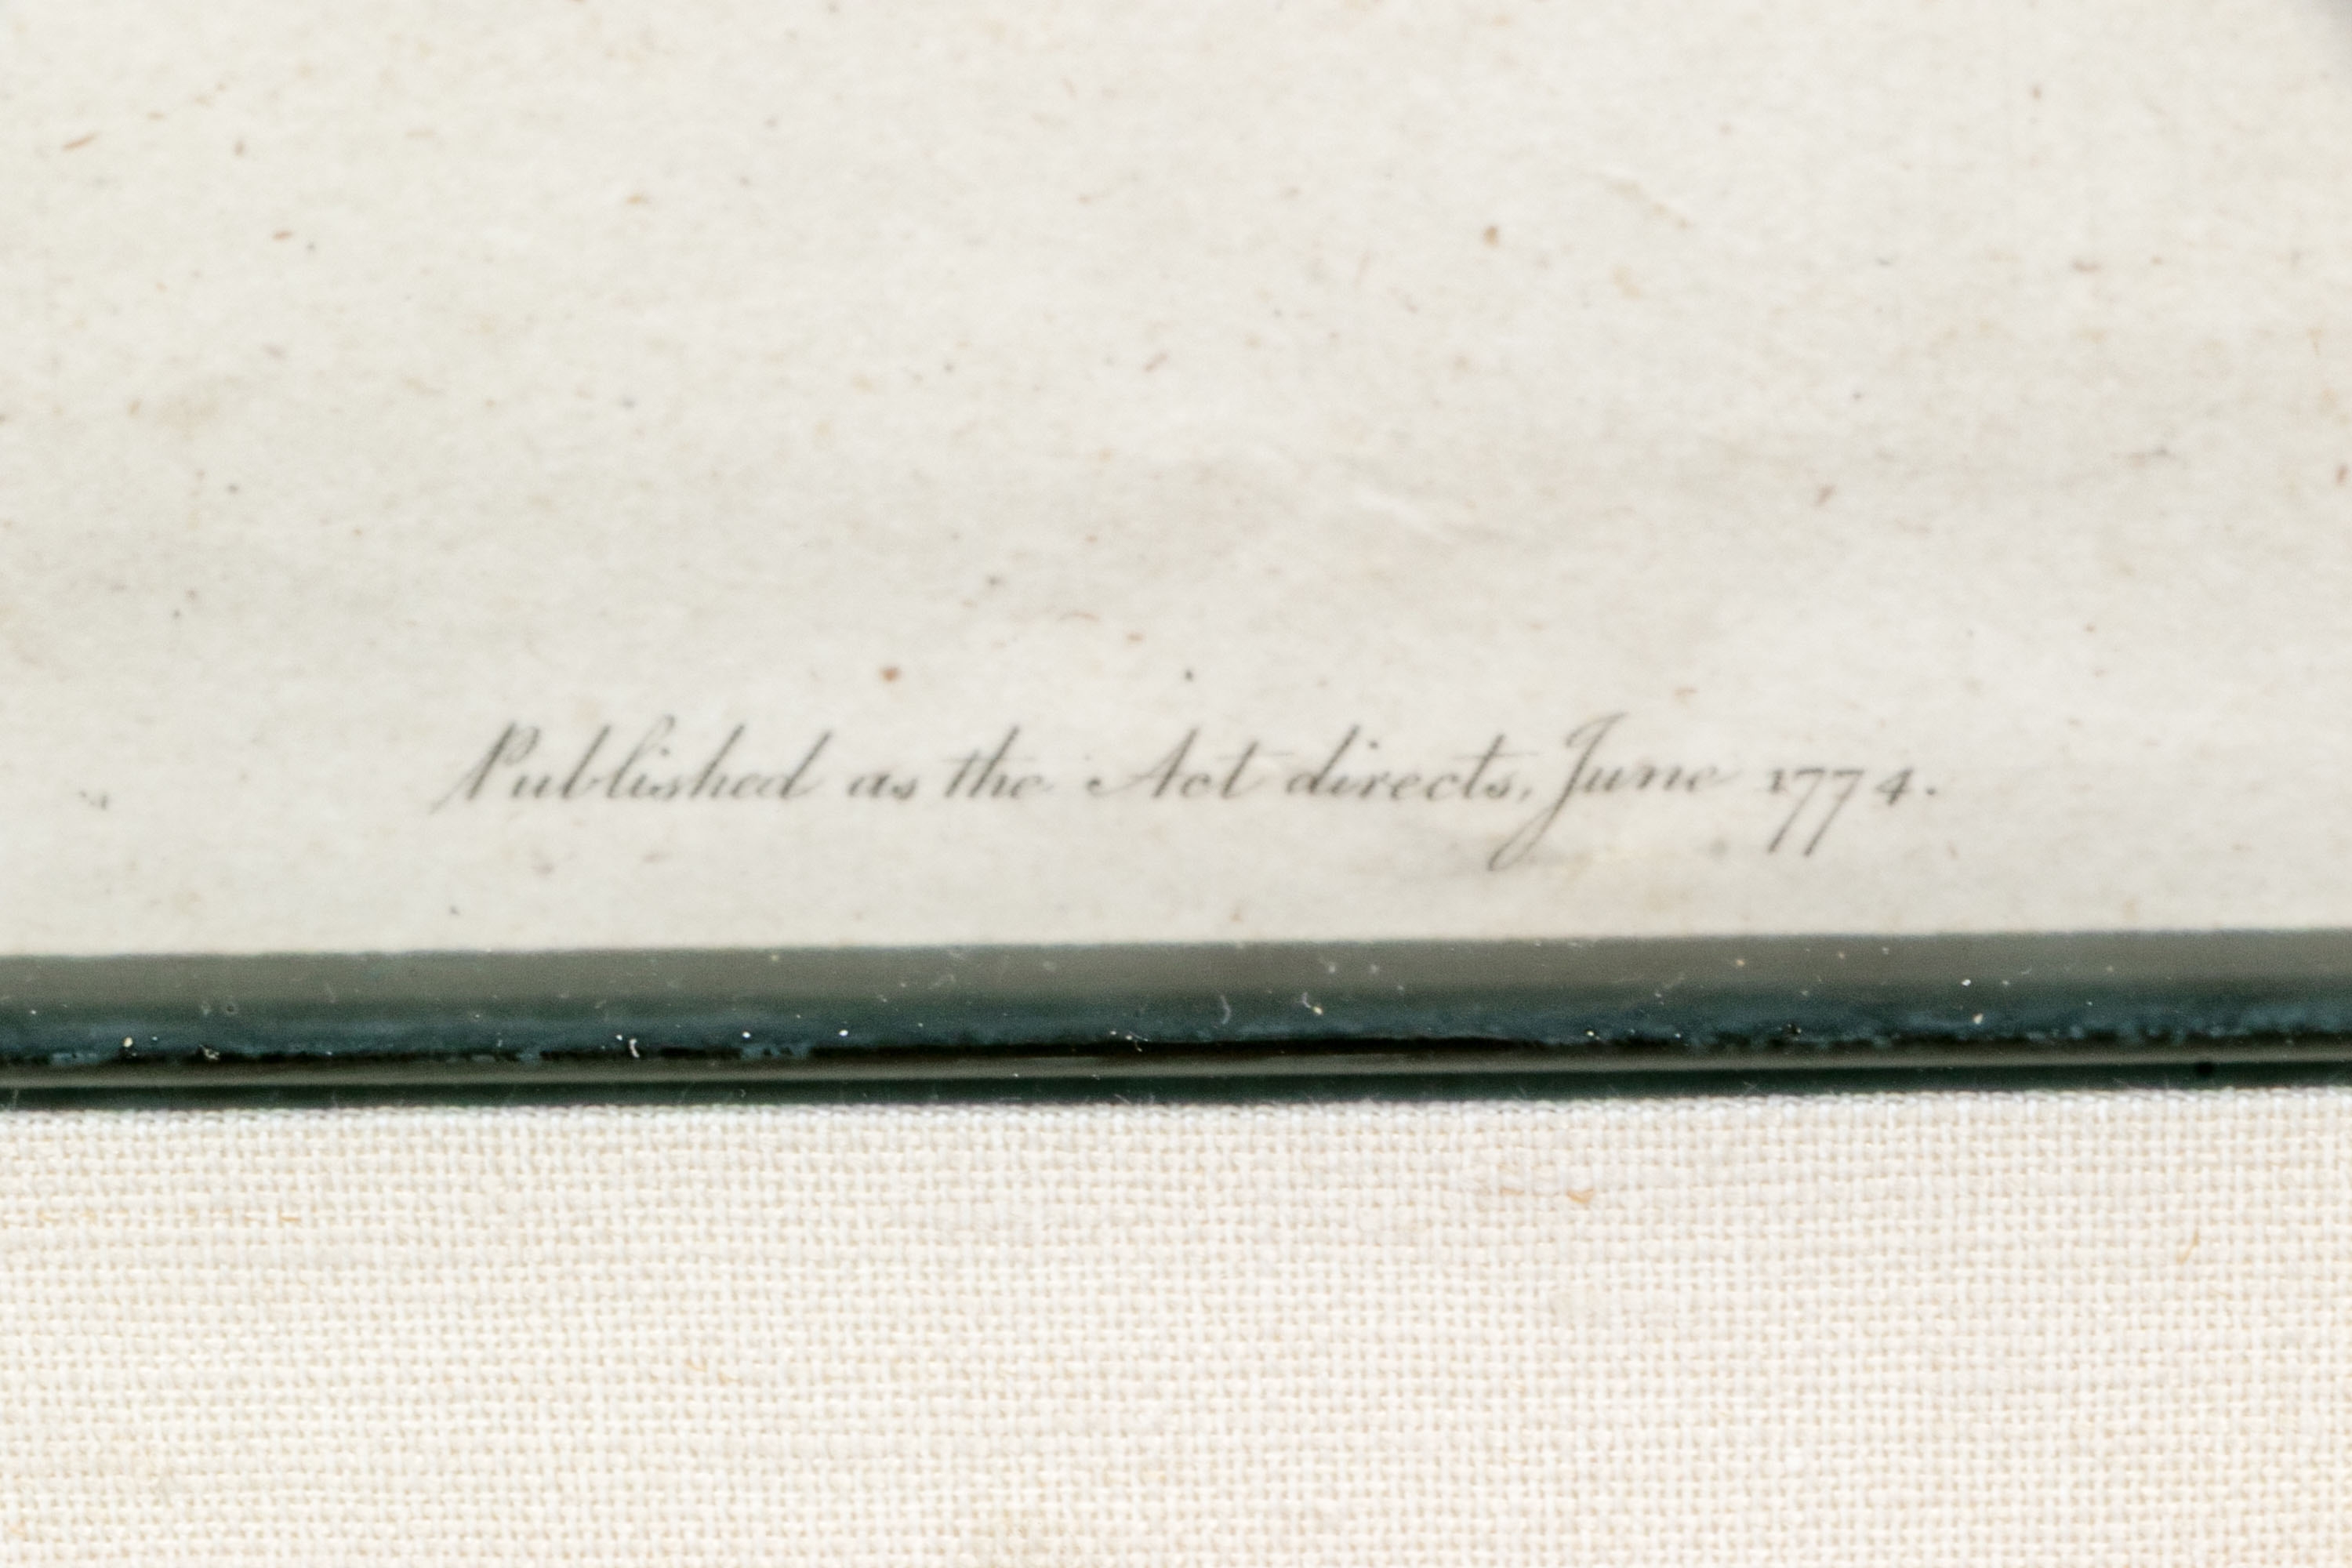 Published as the Act directs, June 1774.